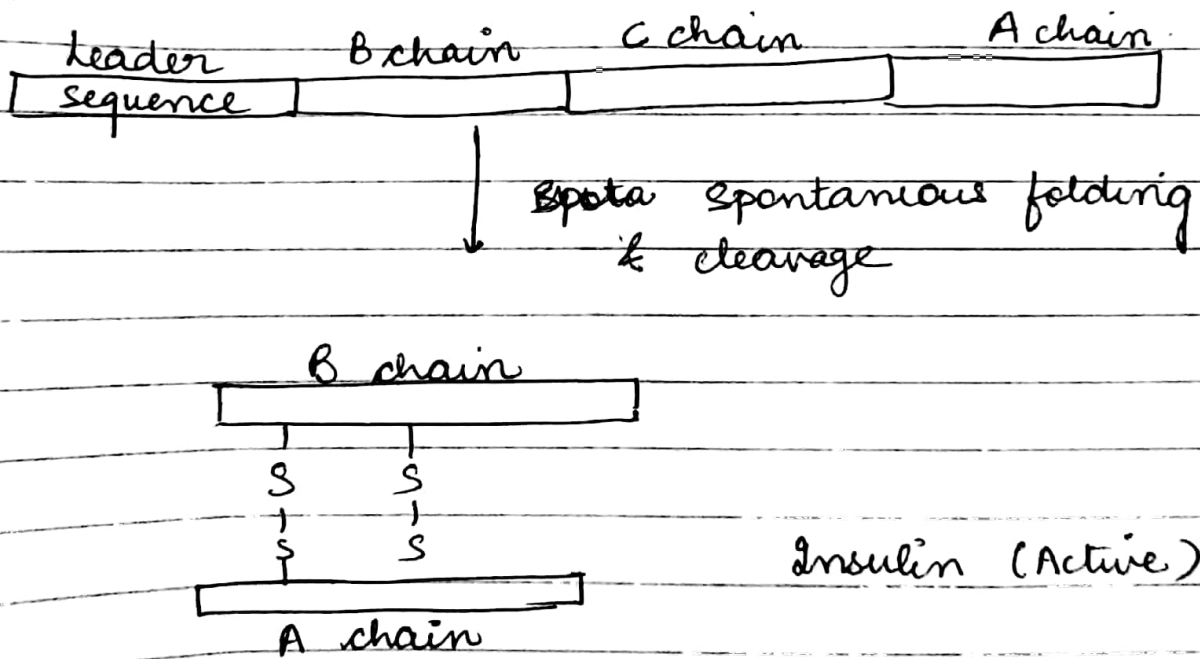 Leader B chain C chain A chain
sequence
spontanious folding
& cleavage
B chain
S S
S S
Insulin (Active)
A chain